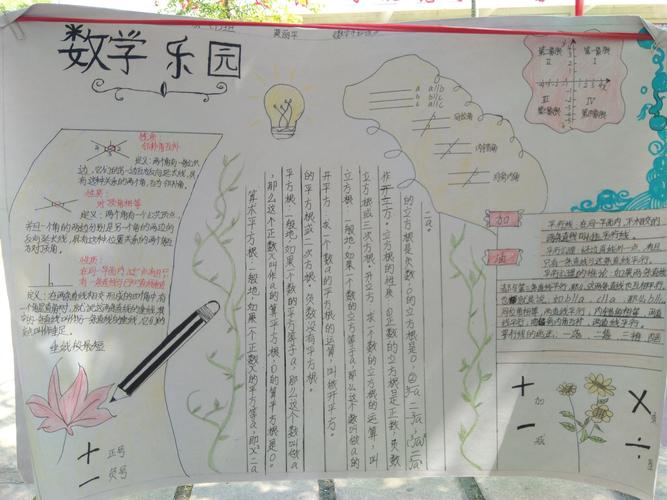 数学乐园
性质:
邻补角互补
定义:两个角有一条公共
边,它们的另一边互为反向延长线,具
有这种关系的两个角,互为邻补角。
性质:
对顶角相等
定义:两个角有一个公共顶点,
并且一个角的两边分别是另一个角的两边的
反向延长线,具有这种位置关系的两个角,
互为对顶角。
性质:
垂线段最短
正号
负号
算术平方根:一般地,如果一个正数x的平方等于a,即x²=a
,那么这个正数x叫做a的算术平方根。0的算术平方根是0。
平方根:一般地,如果一个数的平方等于a,那么这个数叫做a
的平方根或二次方根。负数没有平方根。
开平方:求一个数a的平方根的运算,叫做开平方。
立方根:一般地,如果一个数的立方等于a,那么这个数叫做a的
立方根或三次方根。开立方:求一个数的立方根的运算,叫
作开立方。立方根的性质:①正数的立方根是正数,负数
的立方根是负数,0的立方根是0。②
a a//b
b b//c
c a//c
同位角
内错角
同旁内角
第二象限
第一象限
II
I
III
IV
第三象限
第四象限
加
油
平行线:在同一平面内,不相交的
两条直线叫做平行线。
只有一条直线与这条直线平行。
平行公理的推论:如果两条直线
都与第三条直线平行,那么这两条直线也互相平行。
也就是说:如b//a,c//a,那么b//c
同位角相等,两直线平行,内错角相等,两直
线平行,同旁内角互补,两直线平行。
+
-
加
减
×
÷